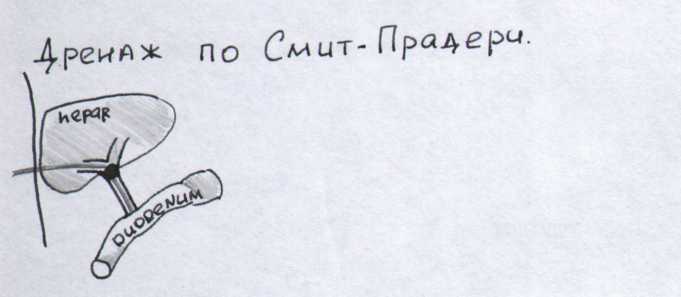 Дренаж по Смит-Прадери.
hepar
DUODENUM